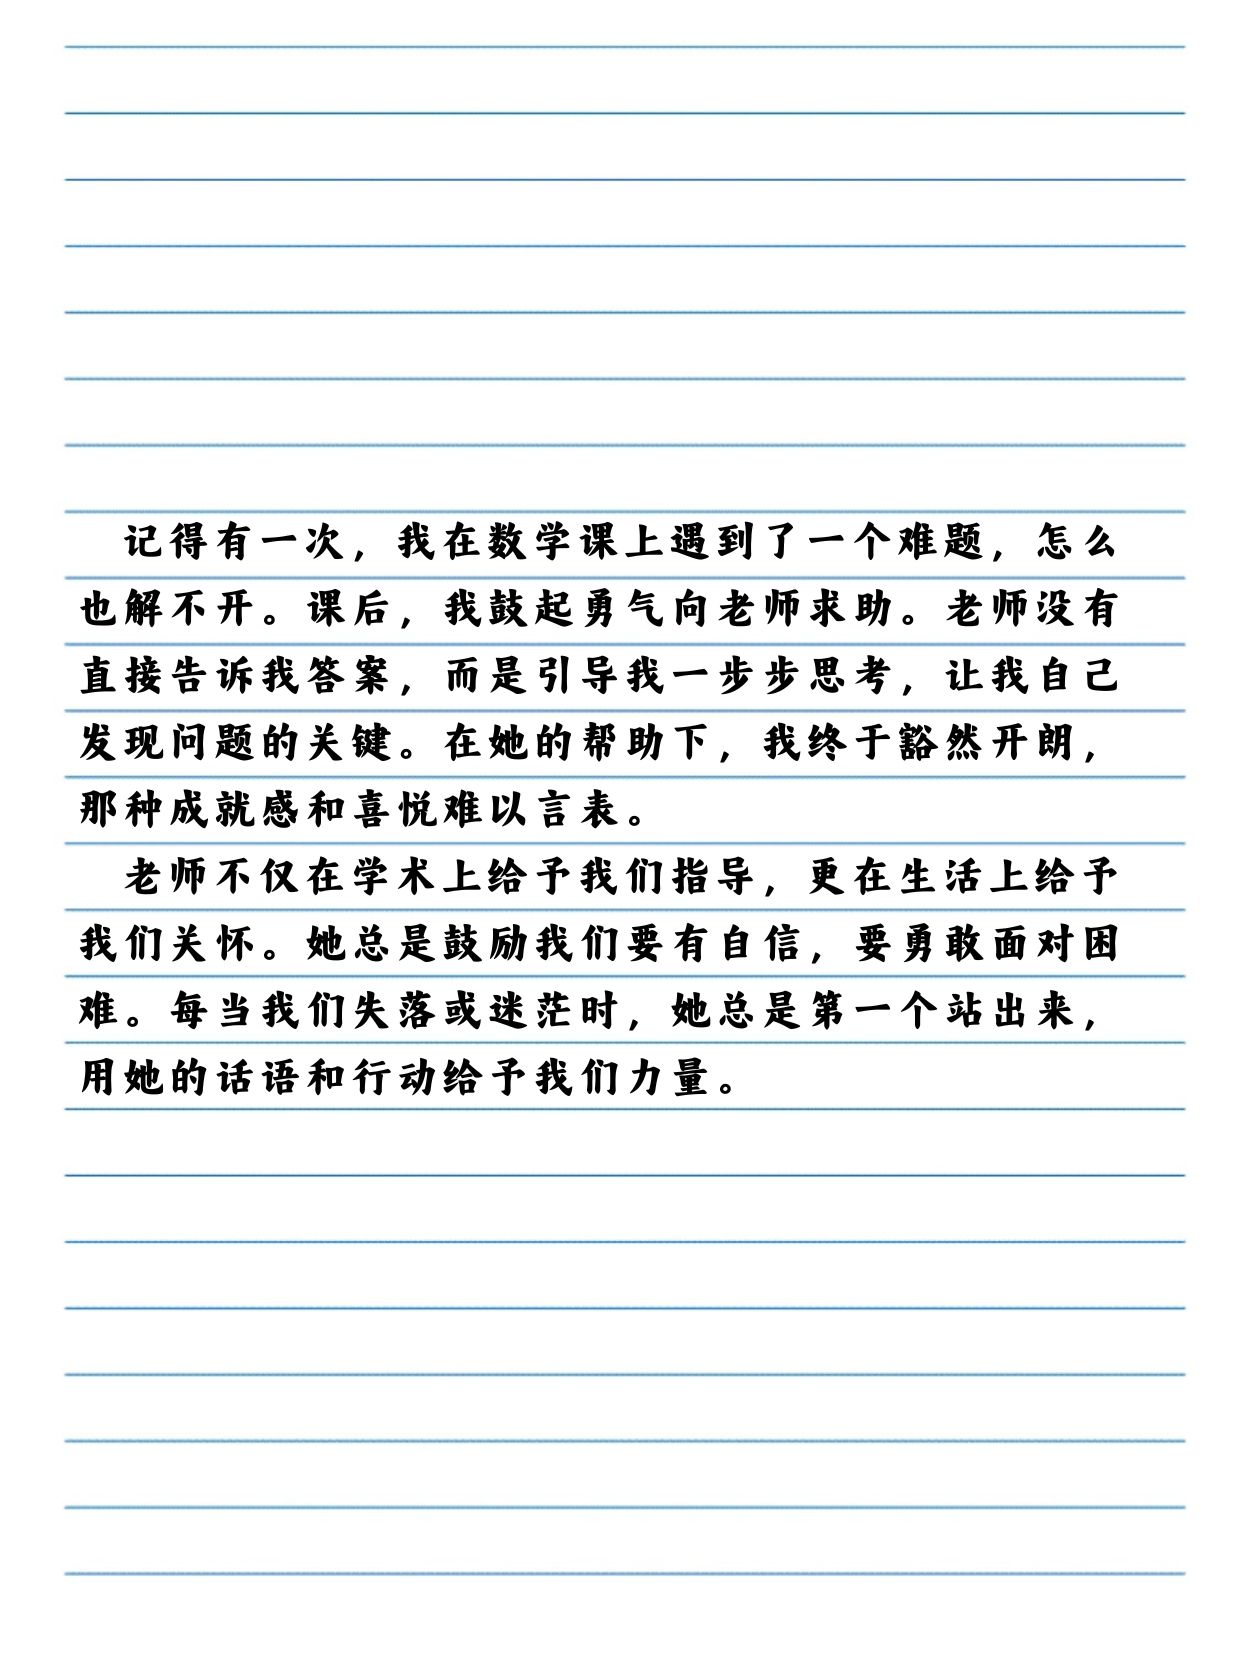 记得有一次，我在数学课上遇到了一个难题，怎么
也解不开。课后，我鼓起勇气向老师求助。老师没有
直接告诉我答案，而是引导我一步步思考，让我自己
发现问题的关键。在她的帮助下，我终于豁然开朗，
那种成就感和喜悦难以言表。
老师不仅在学术上给予我们指导，更在生活上给予
我们关怀。她总是鼓励我们要有自信，要勇敢面对困
难。每当我们失落或迷茫时，她总是第一个站出来，
用她的话语和行动给予我们力量。